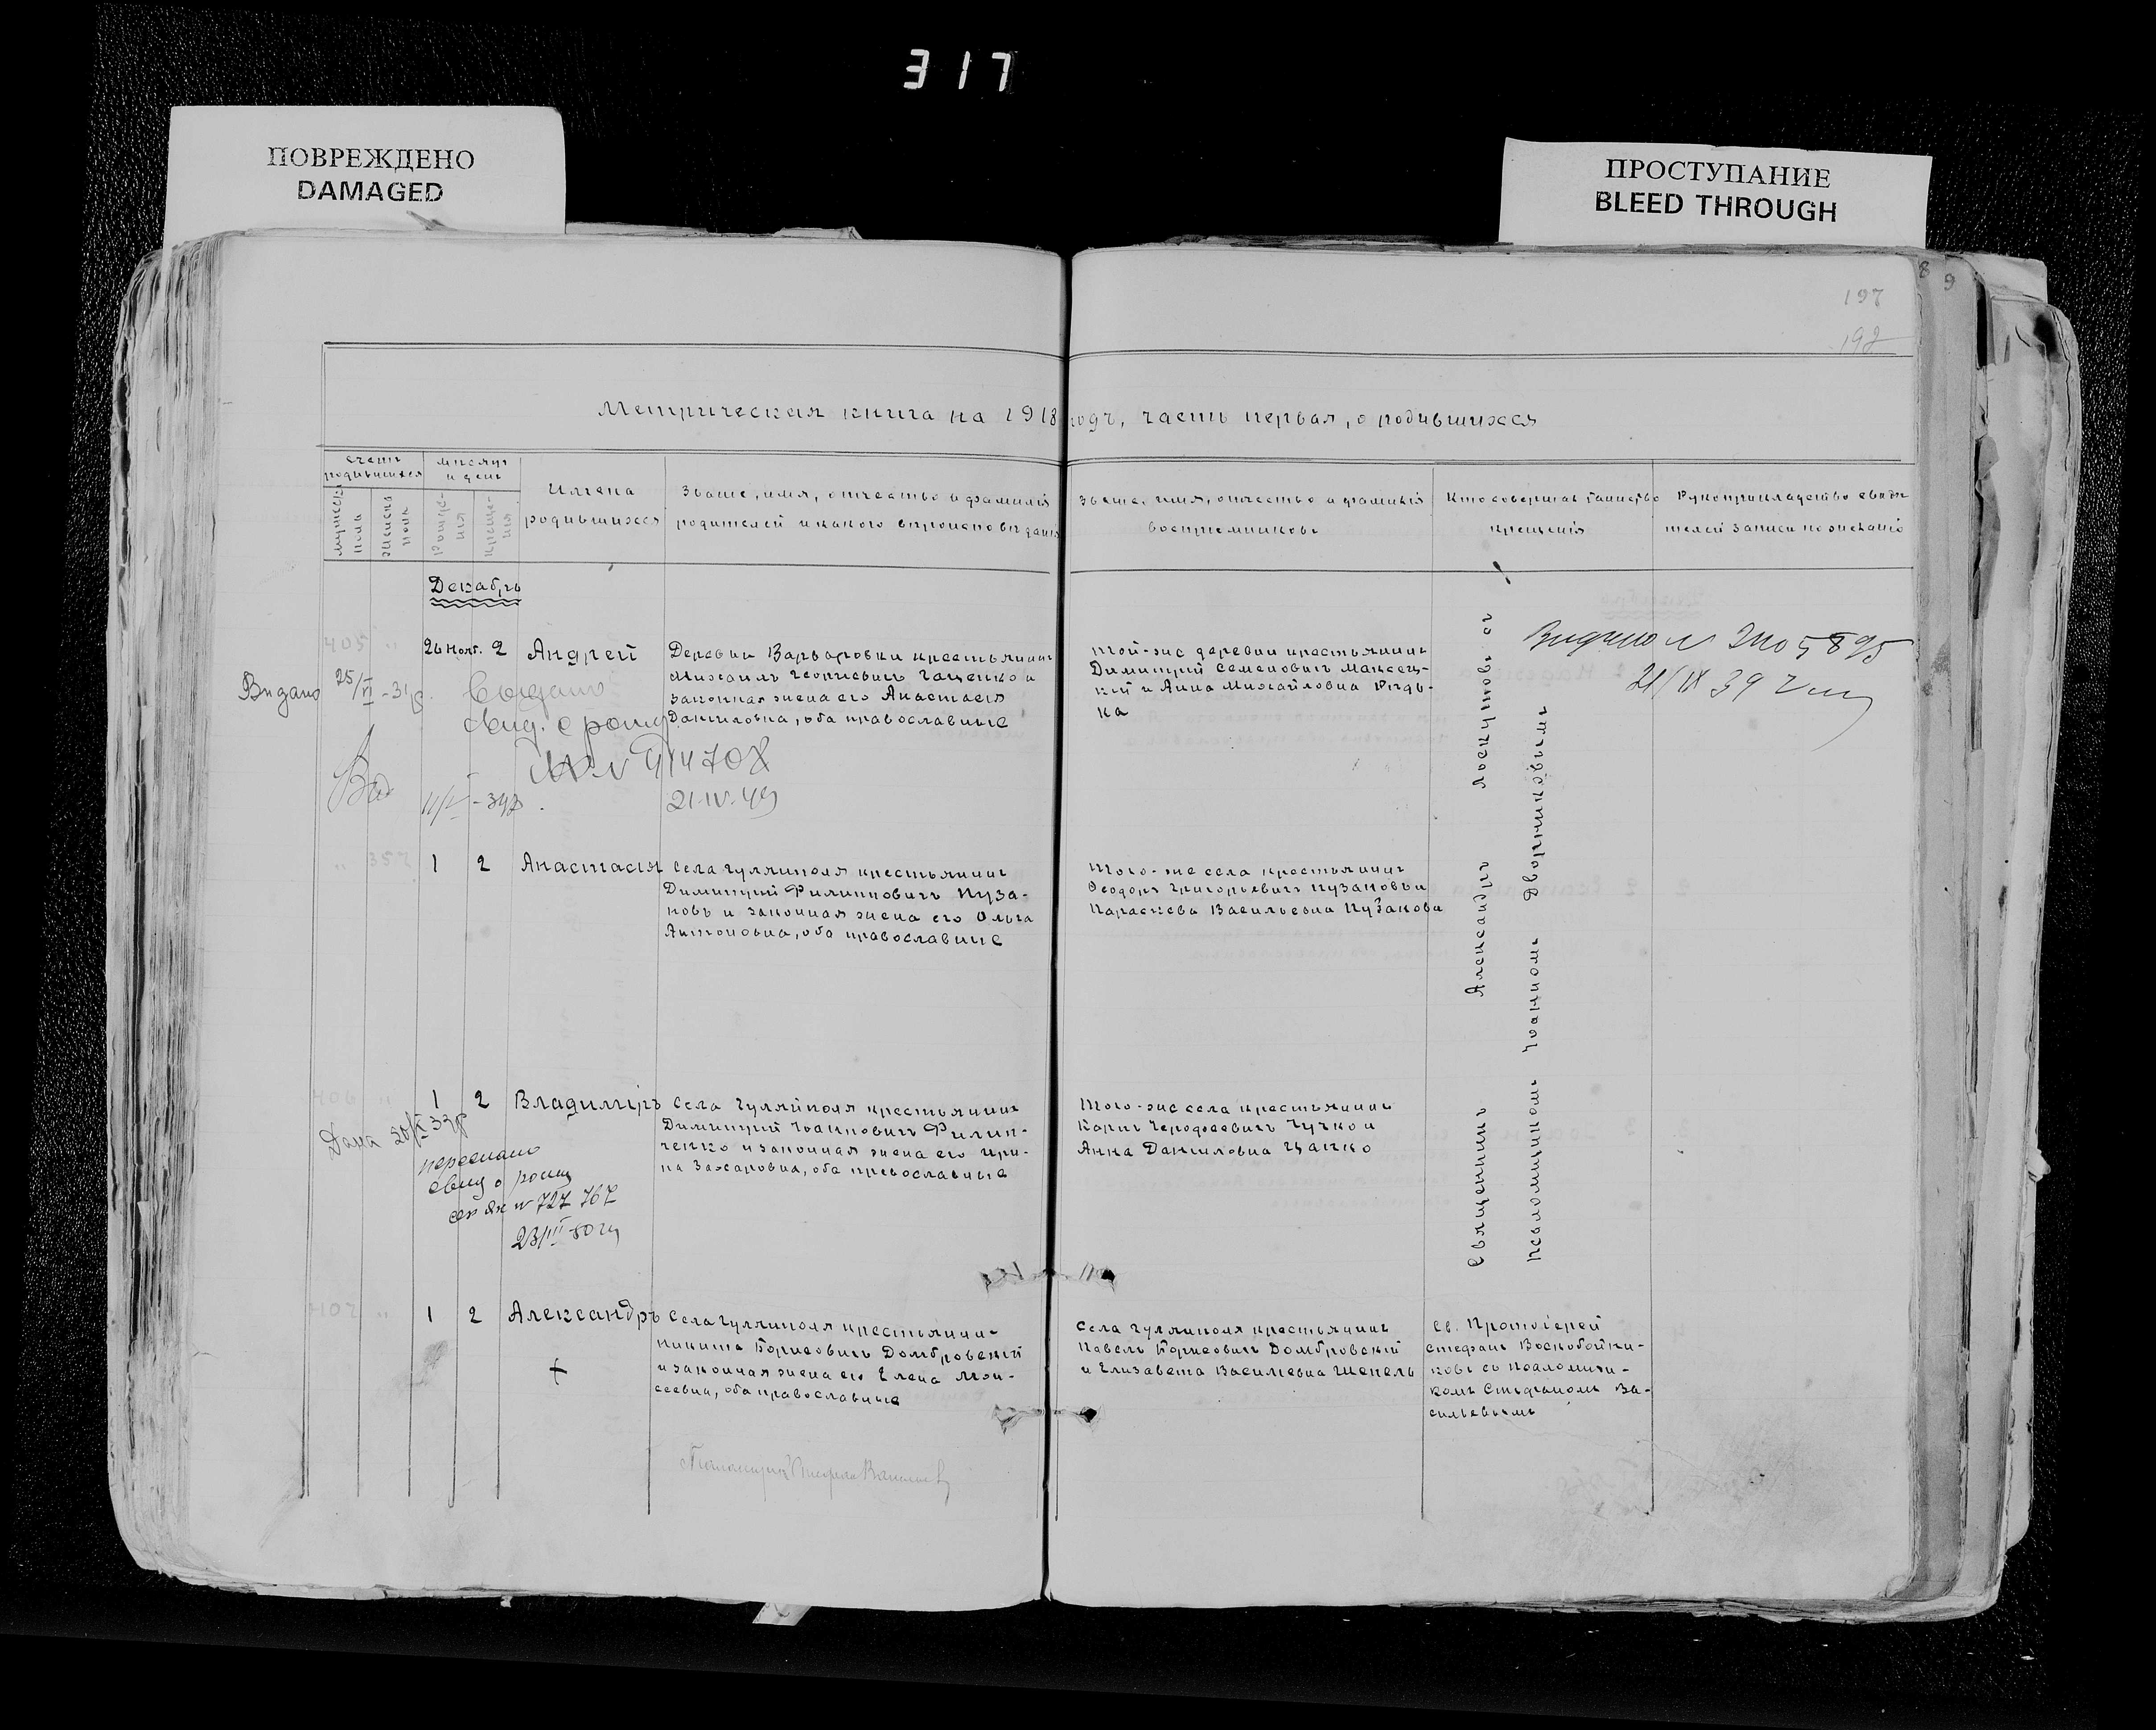 317
ПОВРЕЖДЕНО
DAMAGED
ПРОСТУПАНИЕ
BLEED THROUGH
8 9
197
192
Метрическая книга на 1918 годъ, часть первая, о родившихся
счетъ родившихся
мужеск. пола
женска пола
месяцъ и день
рожде-
ния
креще-
ния
Имена
родившихся
Званіе, имя, отчество и фамилія
родителей и какого вероисповеданія
Званіе, имя, отчество и фамилія
воспріемниковъ
Кто совершалъ таинство
крещенія
Рукоприкладство свиде-
телей записи по желанію
Декабрь
405
26 Нояб. 2
Андрей
Деревни Варваровки крестьянинъ
Михаилъ Георгіевичъ Гащенко и
законная жена его Анастасія
Даниловна, оба православные
Той-же деревни крестьянинъ
Димитрий Семеновичъ Максец-
кій и Анна Михайловна Редь-
ка
Выдано
25/VI-31г.
Выдано
свид. о рожд
№ 414708
21.IV.49
21/IX 39
357
1 2
Анастасія
Села Гуляйполя крестьянинъ
Димитрий Филипповичъ Пуза-
новъ и законная жена его Ольга
Антоновна, оба православные
Того-же села крестьянинъ
Феодоръ Григорьевичъ Пузановъ и
Параскева Васильевна Пузанова
406
1 2
Владиміръ
Села Гуляйполя крестьянинъ
Димитрий Іоанновичъ Филип-
ченко и законная жена его Ири-
на Захаровна, оба православные
Того-же села крестьянинъ
Карпъ Чучко и
Анна Даниловна Цапко
Дана
свид о рожд
№ 727 767
23/III-50
Священникъ Александръ Лоскутовъ съ
псаломщикомъ Іоанномъ Дворниковымъ
407
1 2
Александръ
Села Гуляйполя крестьянинъ
Никита Борисовичъ Домбровскій
и законная жена его Елена Мои-
сеевна, оба православные
Села Гуляйполя крестьянинъ
Павелъ Борисовичъ Домбровскій
и Елизавета Васильевна Шепель
Св. Протоіерей
Стефанъ Воскобойни-
ковъ съ псаломщи-
комъ Стефаномъ Ва-
сильевымъ